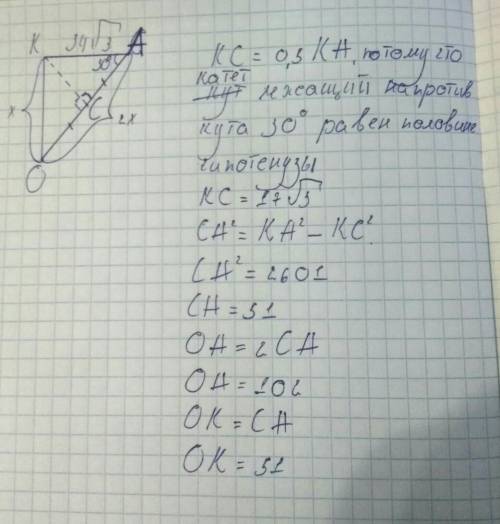 K 34√3 A
30°
x C 2x
O
KC = 0,5 KA, потому что
катет
лежащий напротив
кута 30° равен половине
гипотенузы
KC = 17√3
CA² = KA² − KC²
CA² = 2601
CA = 51
OA = 2CA
OA = 102
OK = CA
OK = 51